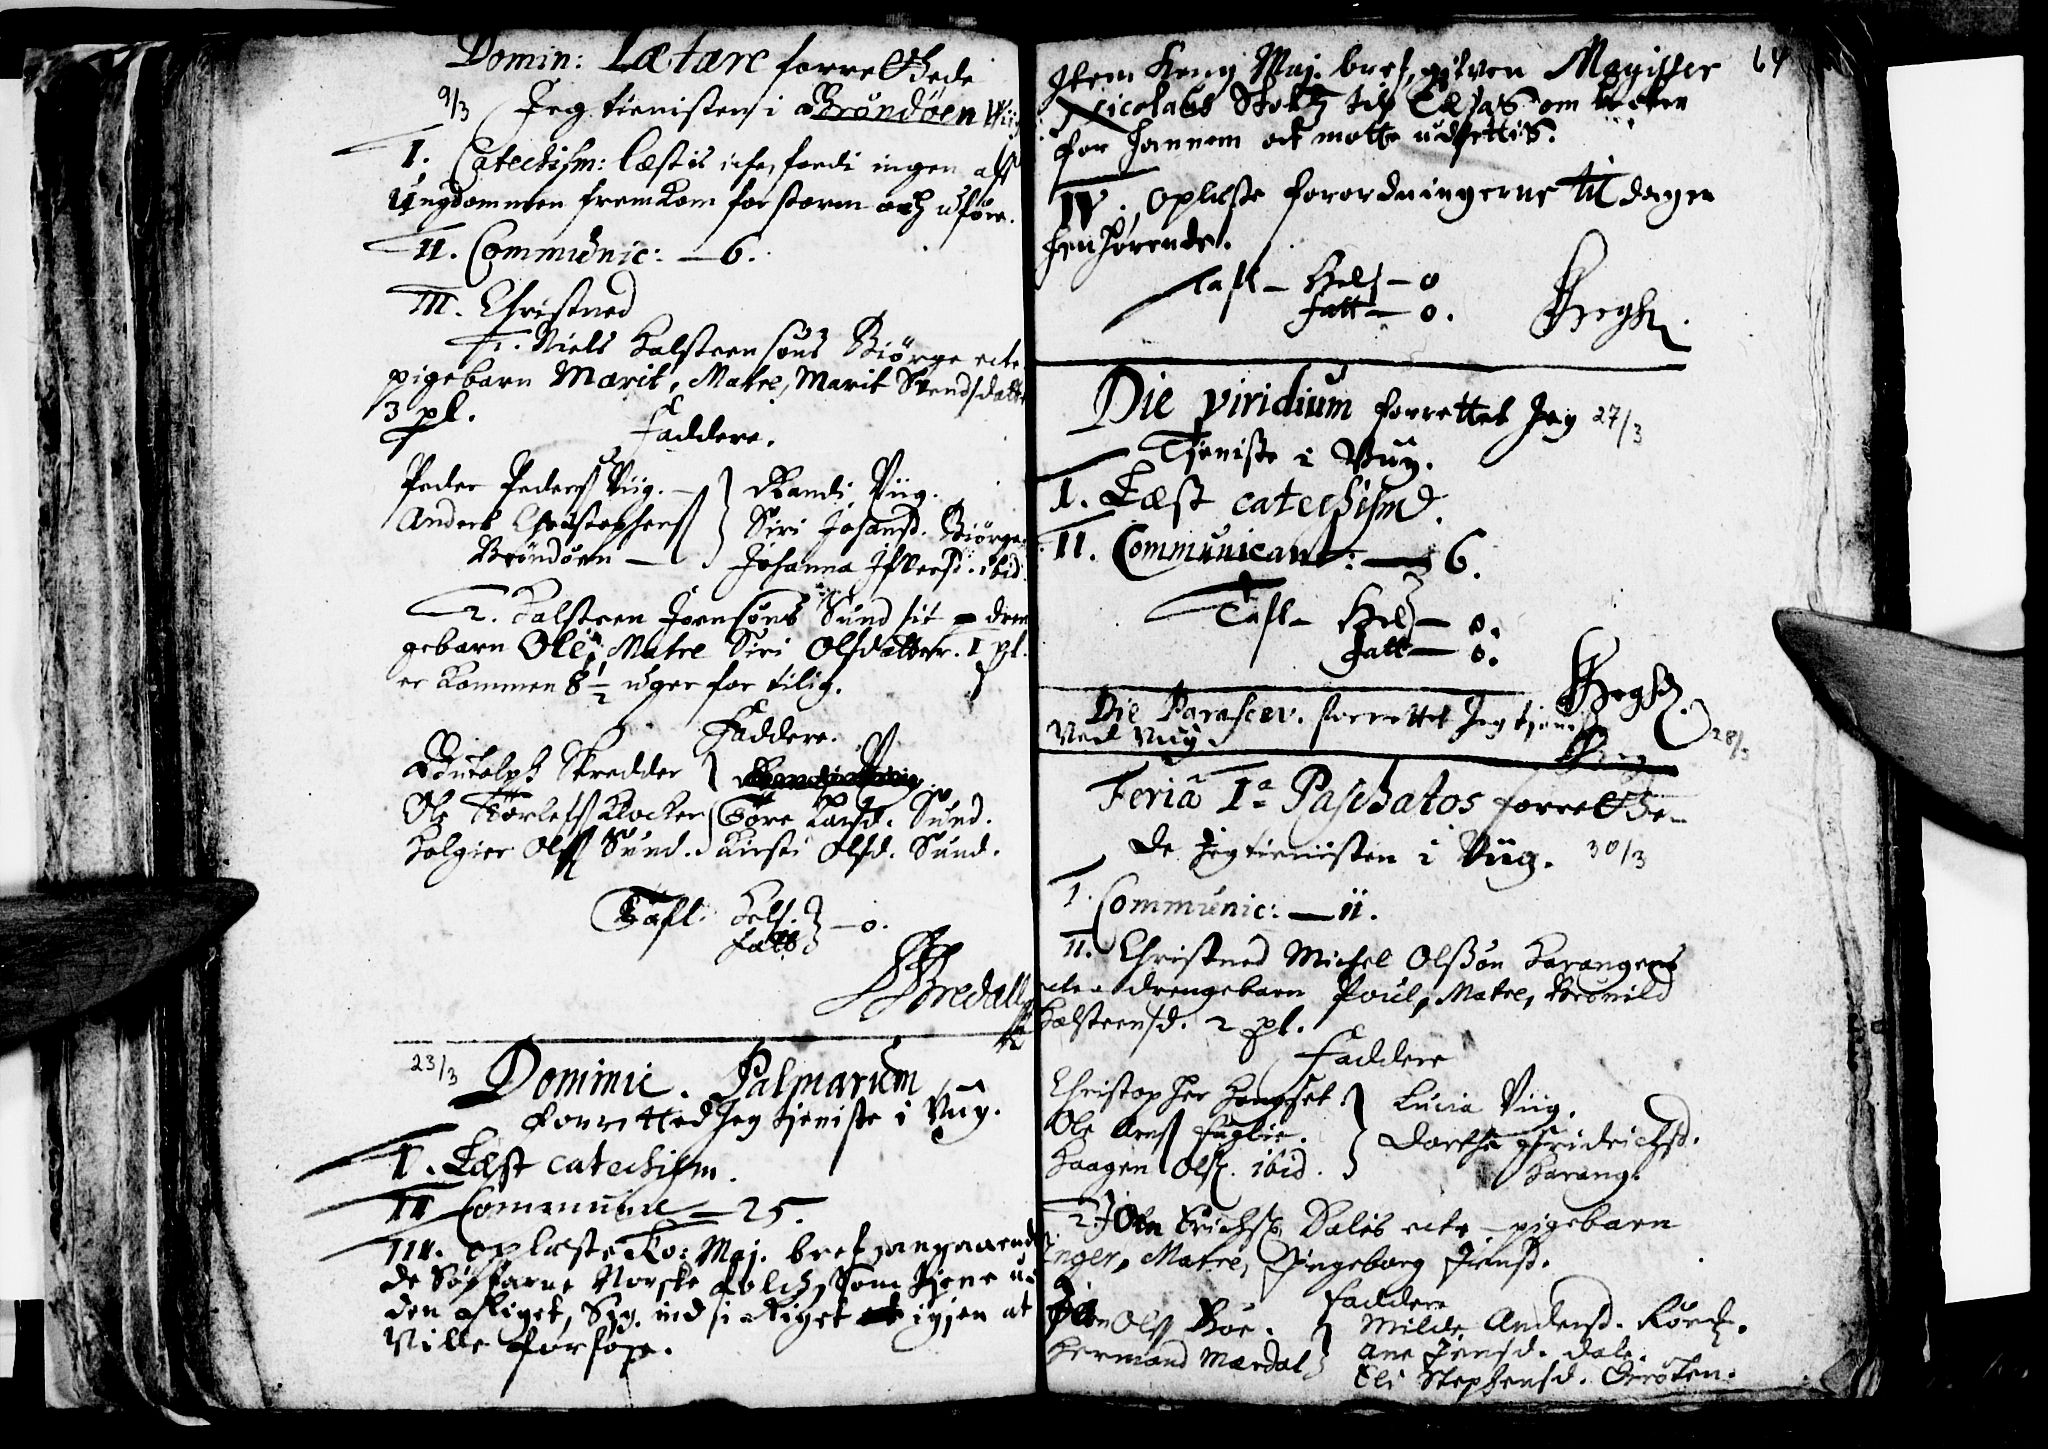 Domin: Lætare forrettede
9/3 Jeg tienisten i Bröndöen
I. Catechism: læstis icke, fordi ingen aff
Ungdommen fremkom for storm och uföre.
II. Communic: — 6.
III. Christned
1. Niels Halsteensöns Biörge ecte
pigebarn Marit, Matre, Marit Svendsdatt
3 pl.
Faddere.
Peder Peders Viig. — Randi Viig.
Anders Christophers Siri Johansd. Biörge
Bröndöen — Johanna Ifversd. ibid.
2. Halsteen Joensöns Sund sit dren
gebarn Ole, Matre Siri Olsdatter. 1 pl.
er kommen 8 1/2 uger for tilig.
Faddere.
Rudolph Skredder
Ole Torlefs Klocker Töre Larsd. Sund.
Holgier Olss Sund. Kirsti Olsd. Sund.
Tafl: Hels.
fatt — 0.
Bredall
23/3 Dominic. Palmarum
Forretted Jeg tieniste i Viig.
I. Læst catechism.
II Commune — 25.
III. oplæste Ko: Maj. bref angaaend
de Söefarne Norske folch, Som tiene u
den Riget, Sig ind i Riget igien at
Ville forföye.
64
Item Kong Maj. bref, gifven Magister
Nicolaus om
for hannem at motte udsettis.
IV. Oplæste forordningerne til dagen
henhörende.
Tafl — Hels — 0
fatt — 0.
Die viridium forrettet Jeg 27/3
Tieniste i Viig.
I. Læst catechism.
II. Communicant: — 6.
Tafl — Hels — 0.
fatt — 0.
Die Parascev. forrettet Jeg tieniste
Ved Viig. 28/3
Feria 1a Paschatos forrette-
de Jeg tienisten i Viig. 30/3
I. Communic: — 11.
II. Christned Michel Olssön Harangers
ecte drengebarn Poul, Matre, Brönild
Halsteensd. 2 pl.
Faddere
Christopher Lucia Viig.
Ole Arns Fuglie. Dorthe Fridrichsd.
Haagen Ols. ibid. Harang.
2. Joen Erichs. Dales ecte pigebarn
Inger, Matre, Ingeborg Jensd.
Faddere
Olss Böe. Milde Andersd.
Hermand Mærdal Ane Jensd. dale.
Eli Stephensd. Gröten.